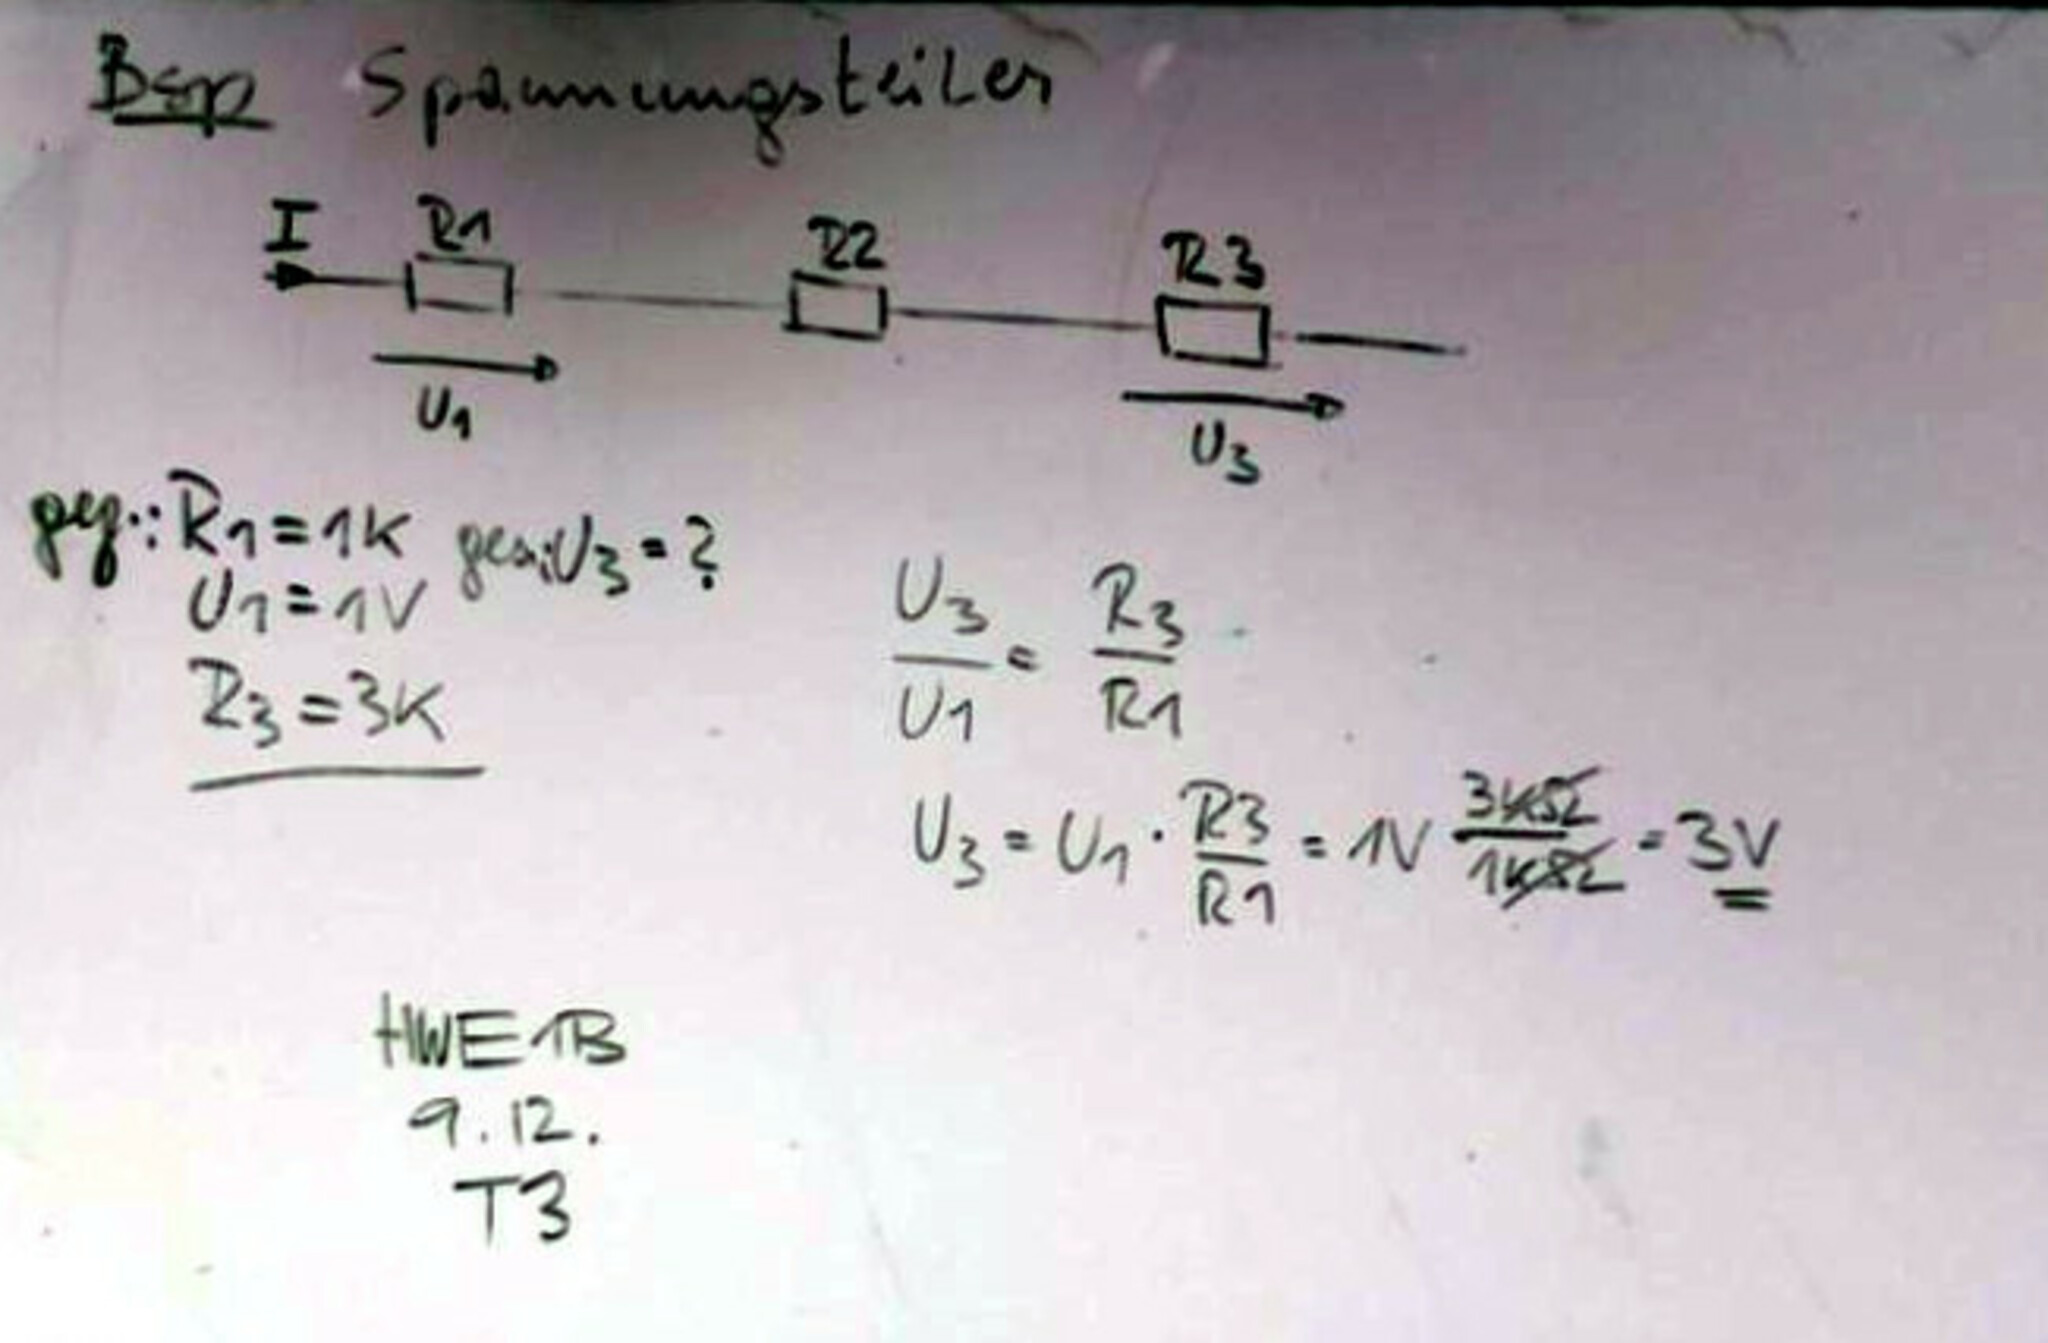 Bsp Spannungsteiler
I R1 R2 R3
U1 U3
geg.: R1 = 1K ges.: U3 = ?
U1 = 1V
R3 = 3K
U3 / U1 = R3 / R1
U3 = U1 · R3 / R1 = 1V 3kΩ / 1kΩ = 3V
HWE1B
9.12.
T3